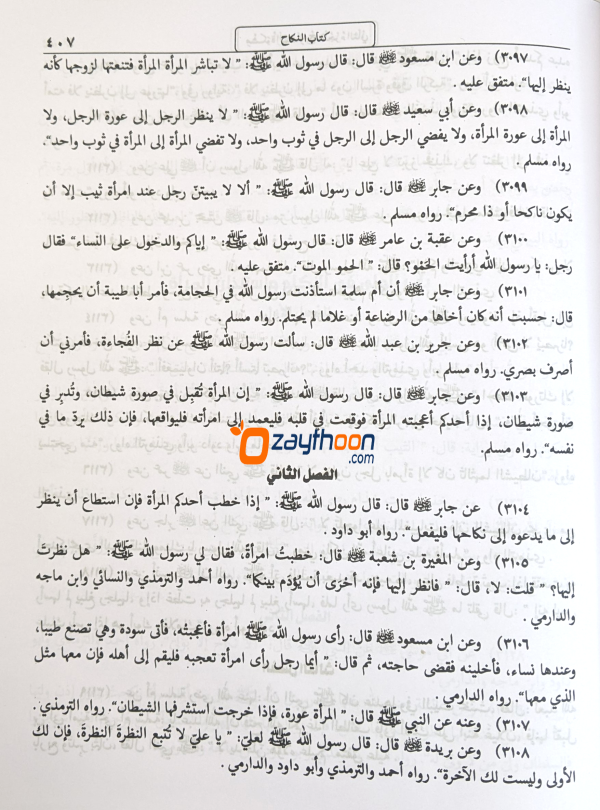 كتاب النكاح
٤٠٧
٣٠٩٧) وعن ابن مسعود ﵁ قال: قال رسول الله ﷺ: ” لا تباشر المرأة المرأة فتنعتها لزوجها كأنه
ينظر إليها“. متفق عليه .
٣٠٩٨) وعن أبي سعيد ﵁ قال: قال رسول الله ﷺ: ” لا ينظر الرجل إلى عورة الرجل، ولا
المرأة إلى عورة المرأة، ولا يفضي الرجل إلى الرجل في ثوب واحد، ولا تفضي المرأة إلى المرأة في ثوب واحد“.
رواه مسلم .
٣٠٩٩) وعن جابر ﵁ قال: قال رسول الله ﷺ: ” ألا لا يبيتنّ رجل عند امرأة ثيب إلا أن
يكون ناكحا أو ذا محرم“. رواه مسلم .
٣١٠٠) وعن عقبة بن عامر ﵁ قال: قال رسول الله ﷺ: ” إياكم والدخول على النساء“ فقال
رجل: يا رسول الله أرأيت الحَمْو؟ قال: ” الحمو الموت“. متفق عليه .
٣١٠١) وعن جابر ﵁ أن أم سلمة استأذنت رسول الله في الحجامة، فأمر أبا طيبة أن يحجِمها،
قال: حسبت أنه كان أخاها من الرضاعة أو غلاما لم يحتلم. رواه مسلم .
٣١٠٢) وعن جرير بن عبد الله ﵁ قال: سألت رسول الله ﷺ عن نظر الفُجاءة، فأمرني أن
أصرف بصري. رواه مسلم .
٣١٠٣) وعن جابر ﵁ قال: قال رسول الله ﷺ: ” إن المرأة تُقبِل في صورة شيطان، وتُدبر في
صورة شيطان، إذا أحدكم أعجبته المرأة فوقعت في قلبه فليعمد إلى امرأته فليواقعها، فإن ذلك يردّ ما في
نفسه“. رواه مسلم.
ozaythoon
.com
الفصل الثاني
٣١٠٤) عن جابر ﵁ قال: قال رسول الله ﷺ: ” إذا خطب أحدكم المرأة فإن استطاع أن ينظر
إلى ما يدعوه إلى نكاحها فليفعل“. رواه أبو داود .
٣١٠٥) وعن المغيرة بن شعبة ﵁ قال: خطبتُ امرأةً، فقال لي رسول الله ﷺ: ” هل نظرتَ
إليها؟ “ قلت: لا، قال: ” فانظر إليها فإنه أحْرَى أن يُؤدَم بينكما“. رواه أحمد والترمذي والنسائي وابن ماجه
والدارمي .
٣١٠٦) وعن ابن مسعود ﵁ قال: رأى رسول الله ﷺ امرأة فأعجبته، فأتى سودة وهي تصنع طيبا،
وعندها نساء، فأخلينه فقضى حاجته، ثم قال: ” أيما رجل رأى امرأة تعجبه فليقم إلى أهله فإن معها مثل
الذي معها“. رواه الدارمي .
٣١٠٧) وعنه عن النبي ﷺ قال: ” المرأة عورة، فإذا خرجت استشرفها الشيطان“. رواه الترمذي .
٣١٠٨) وعن بريدة ﵁ قال: قال رسول الله ﷺ لعليّ: ” يا عليّ لا تُتبع النظرةَ النظرةَ، فإن لك
الأولى وليست لك الآخرة“. رواه أحمد والترمذي وأبو داود والدارمي .